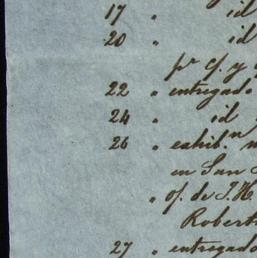 17 " id
20 " id
pr C/. y
22 " entregado
24 " id
26 " exhibn
en San
" of. de J. H.
Robert
27 " entregado